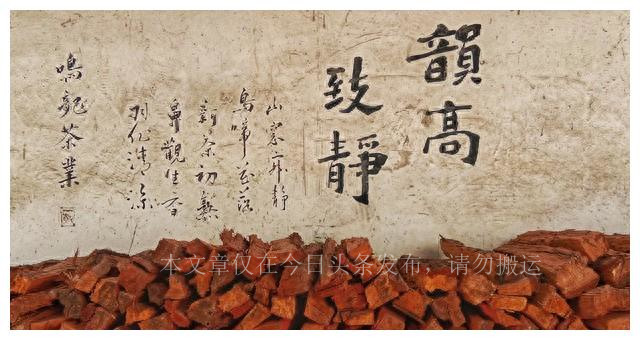 韻高
致靜
山靜
鳥啼花落
新茶初
鼻觀生香
羽化清涼
鳴龍茶業
本文章仅在今日头条发布，请勿搬运